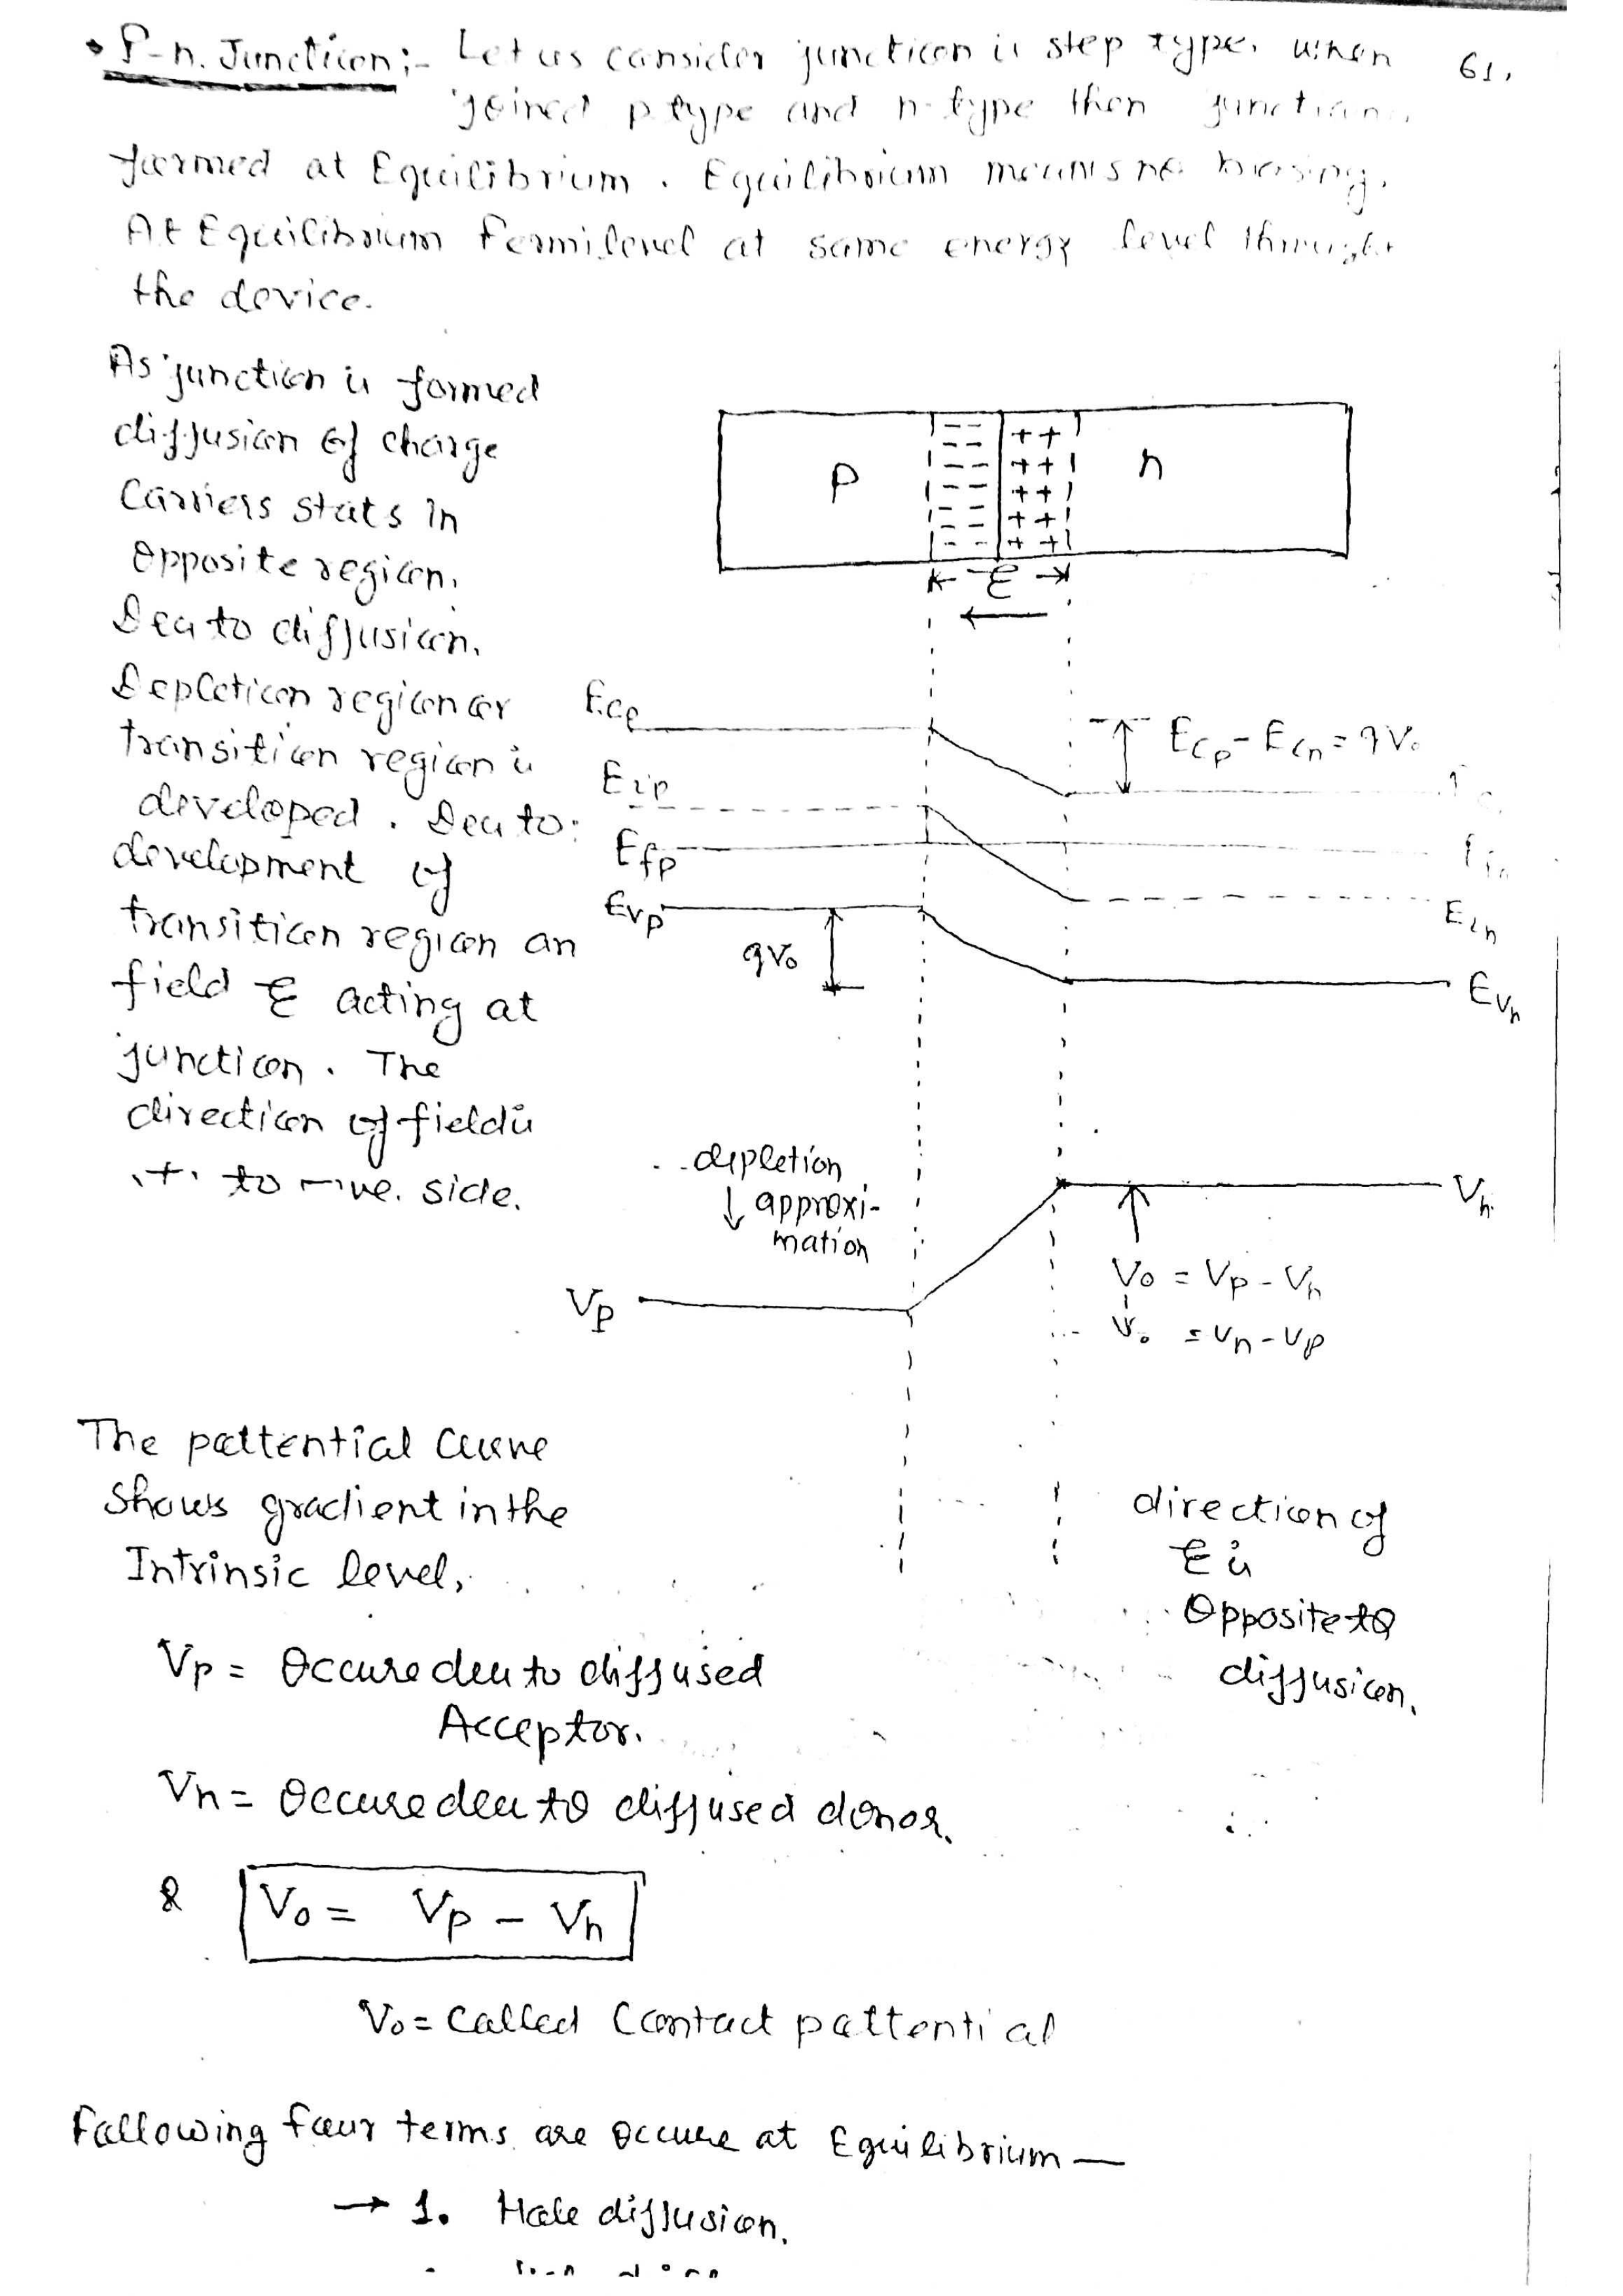 P-n. Junction;- Let us consider junction is step type. when 61.
joined p type and n-type then junction
formed at Equilibrium. Equilibrium means no biasing.
At Equilibrium Fermilevel at same energy level
the device.
As junction is formed
diffusion of charge
Carriers stats in
Opposite region.
Deu to diffusion.
Depletion region or
transition region is
developed. Deu to
development of
transition region an
field ℰ acting at
junction. The
direction of field is
+. to -ive. side.
P
n
ℰ
Ecp
Ecp - Ecn = qV₀
Eip
Efp
Evp
qV₀
Ein
Evn
depletion
↓ approxi-
mation
Vn
Vp
V₀ = Vp - Vn
V₀ = Vn - Vp
The pottential Curve
Shows gradient in the
Intrinsic level.
direction of
ℰ is
Opposite to
diffusion.
Vp = Occure deu to diffused
Acceptor.
Vn = Occure deu to diffused donor.
& V₀ = Vp - Vn
V₀ = Called Contact pottential
Following four terms are occure at Equilibrium —
→ 1. Hole diffusion.